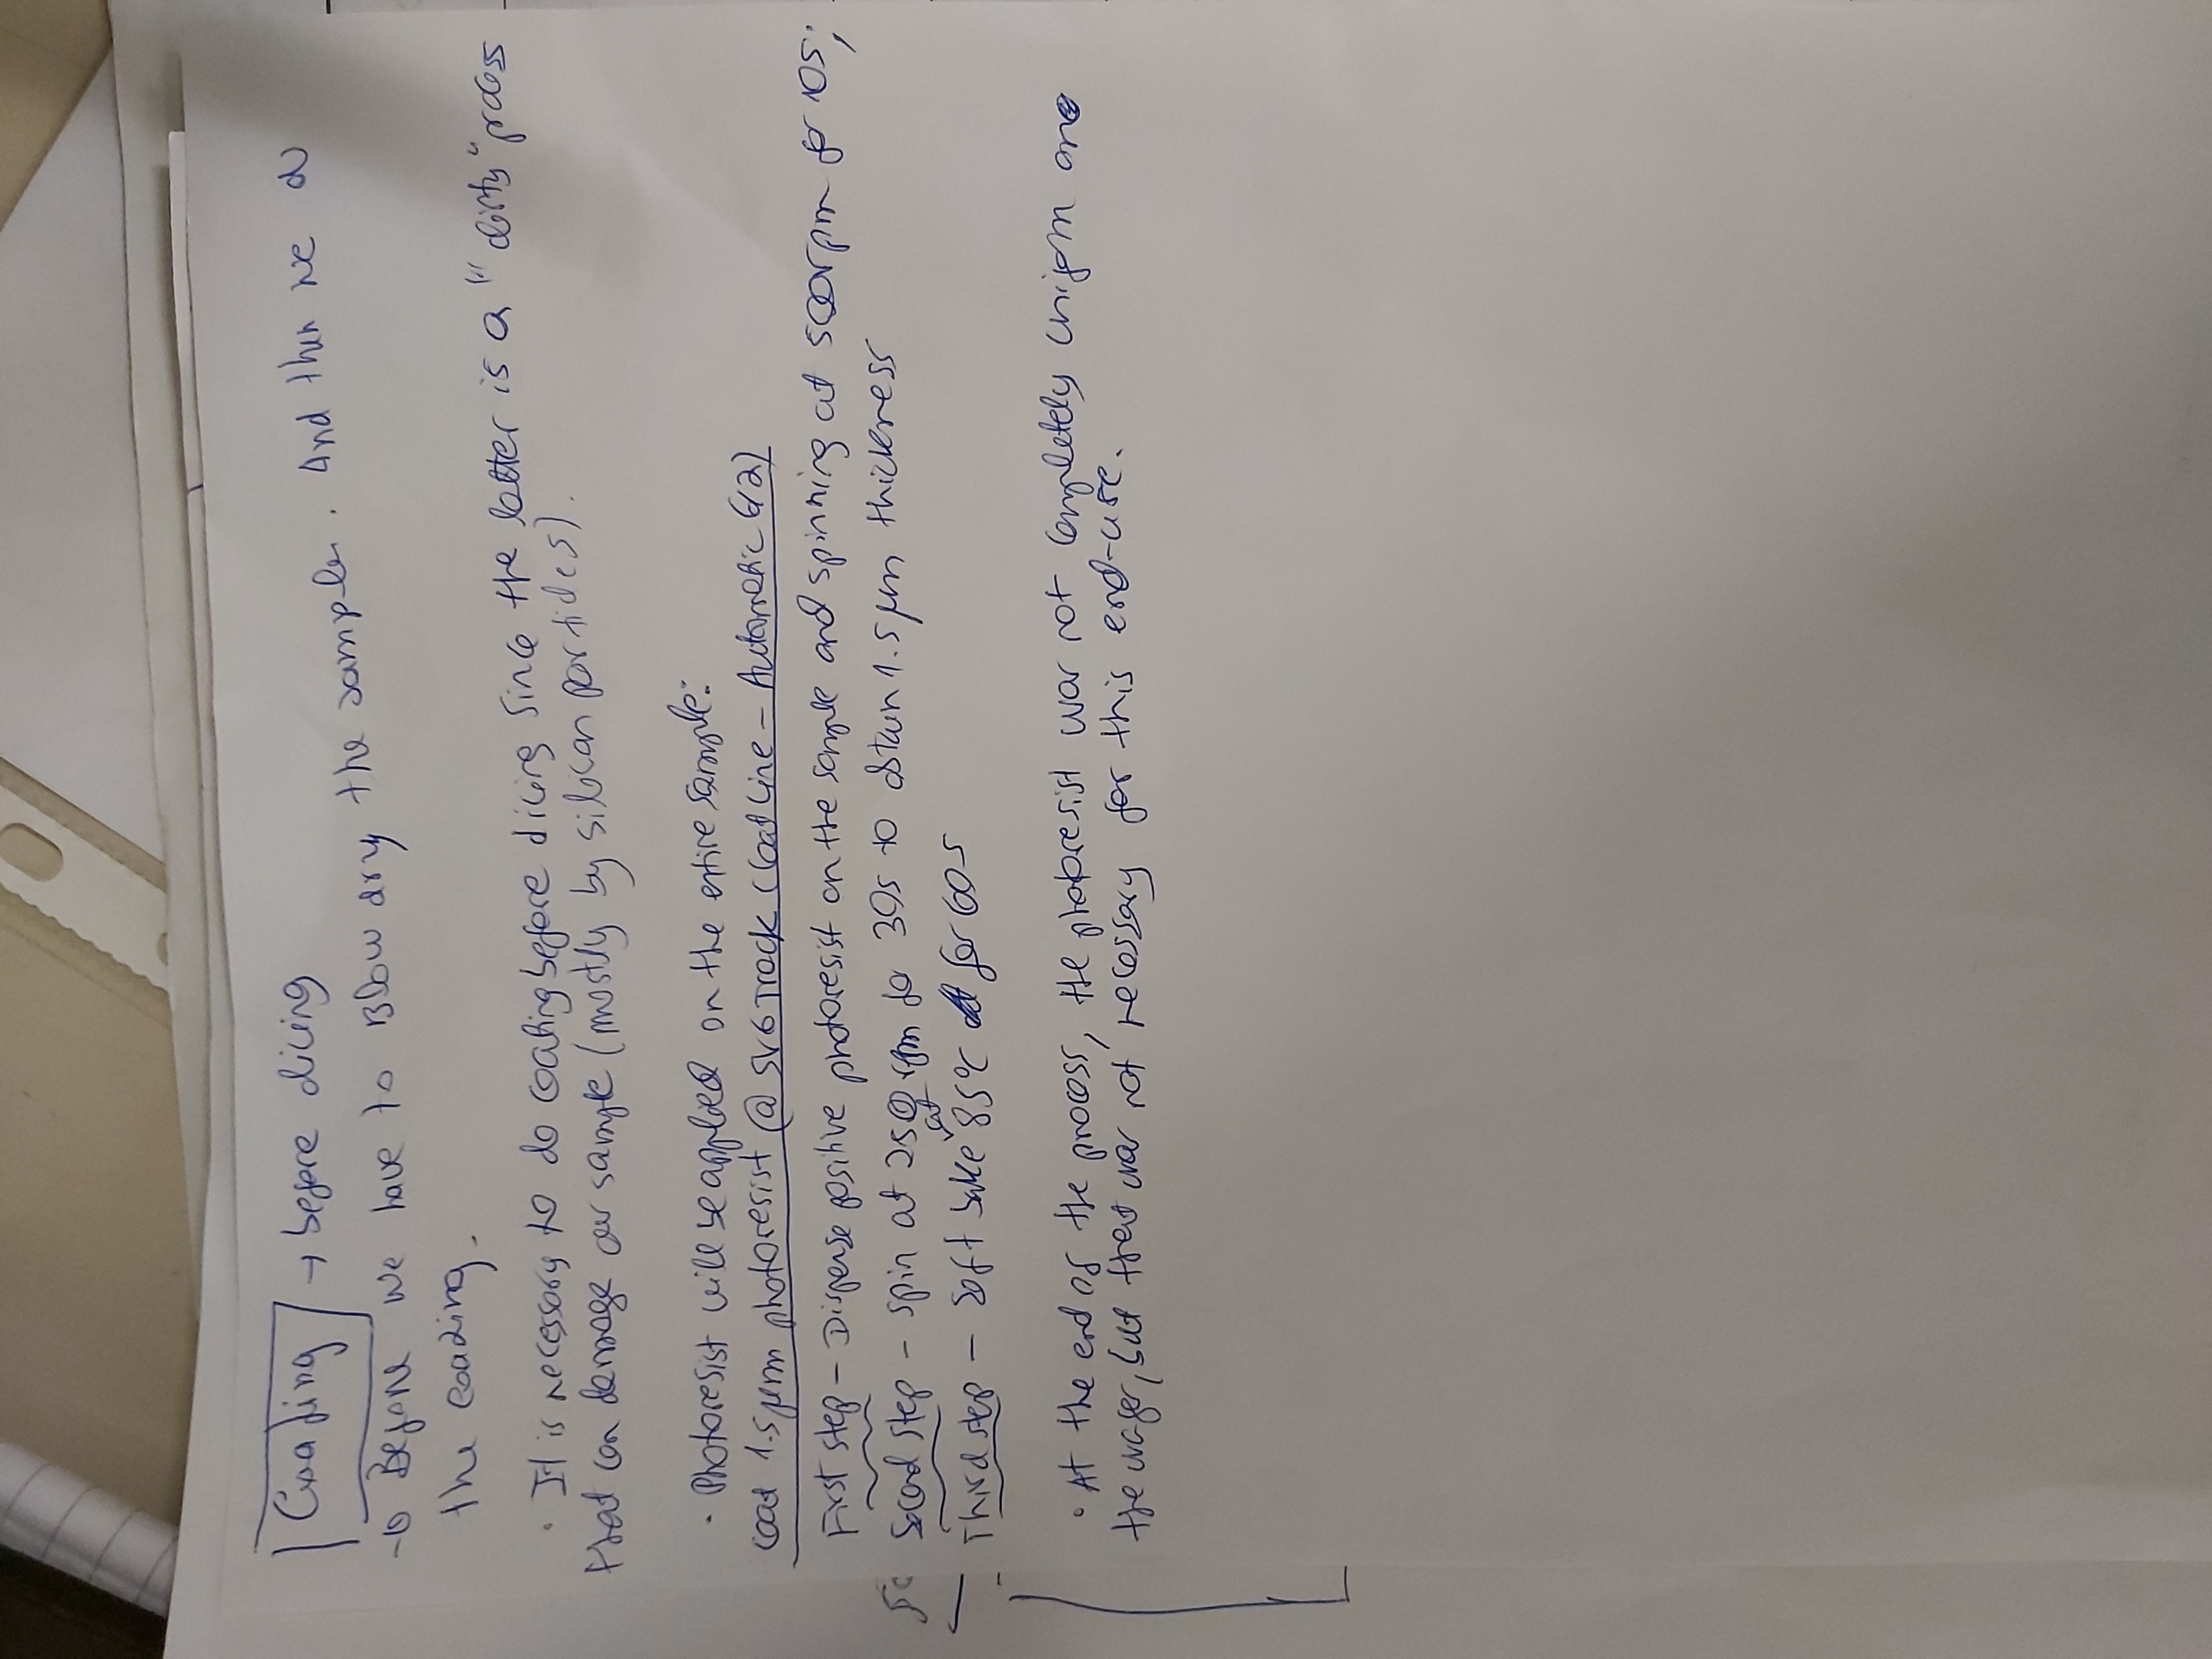 Coading → before dicing
→ Before we have to Blow dry the samples. And then we do
the coading.
· It is necessary to do coating before dicing since the latter is a "dirty" process
that can damage our sample (mostly by silicon particles).
· Photoresist will be applied on the entire sample:
coat 1.5 μm photoresist @ SVG Track (Coat Line - Automatic 6/2)
First step - Dispense positive photoresist on the sample and spinning at 500 rpm for 10s;
Second step - spin at rpm for 30s to obtain 1.5 μm thickness
Third step - Soft bake at 85°C for 60s
· At the end of the process, the photoresist was not completely uniform
the wafer, but that was not necessary for this end-use.